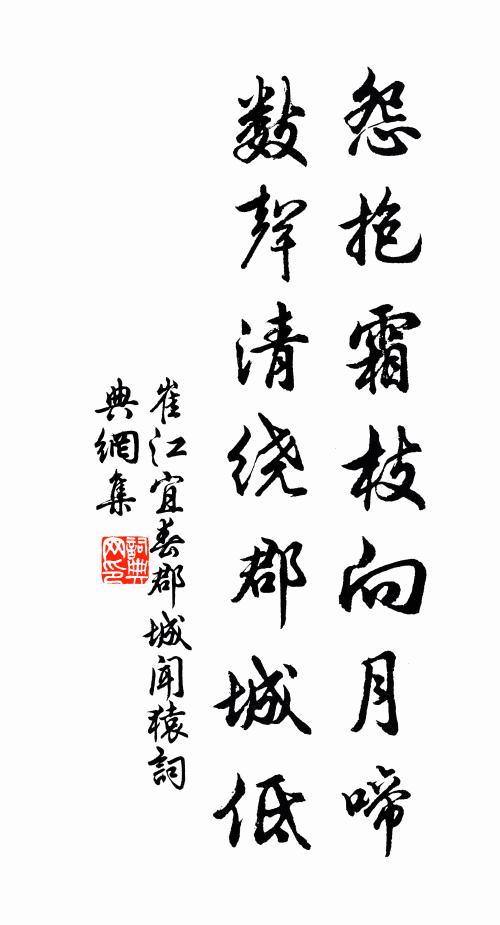 怨抱霜枝向月啼
數聲清绕郡城低
崔江宜春郡城闻猿詞
典網集
詞典网印